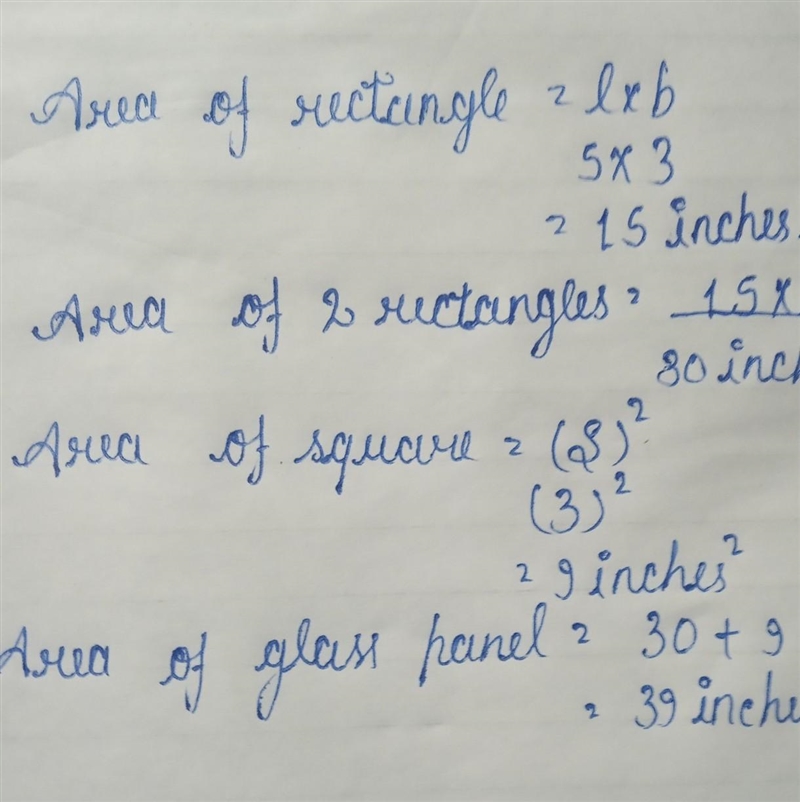 Area of rectangle = l x b
5 x 3
= 15 inches
Area of 2 rectangles = 15 x
30 inch
Area of square = (S)²
(3)²
= 9 inches²
Area of glass panel = 30 + 9
= 39 inche